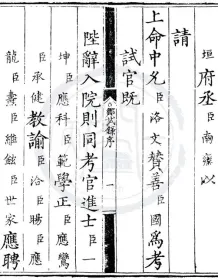 垣府丞臣南以
請
上命中允臣洛文贊善臣國為考
試官既
鄉試錄序
一
陛辭入院則同考官進士臣一
坤臣應科臣範學正臣應鸞
臣承健教諭臣洽臣暘臣應
龍臣燾臣維館臣世家應聘